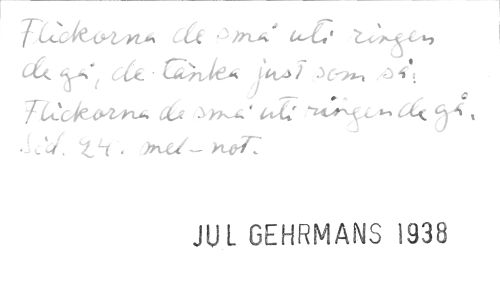 Flickorna de små uti ringen
de gå, de tänka just som så:
Flickorna de små uti ringen de gå.
Sid. 24. mel-not.
JUL GEHRMANS 1938